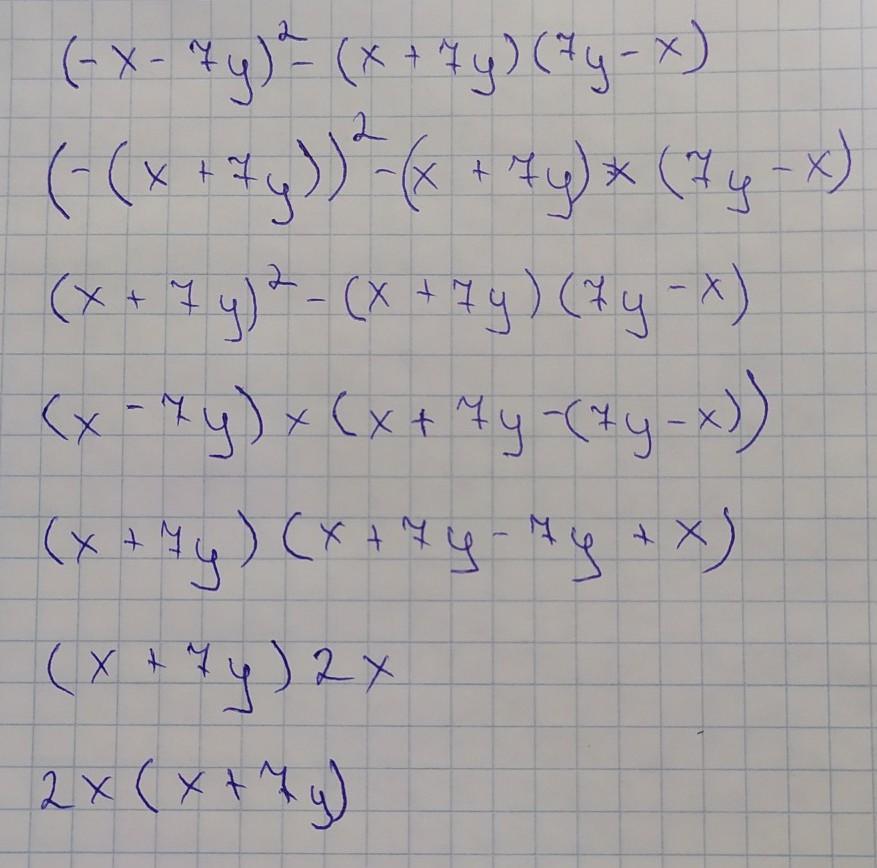 (-x-7y)²-(x+7y)(7y-x)
(-(x+7y))²-(x+7y)×(7y-x)
(x+7y)²-(x+7y)(7y-x)
(x-7y)×(x+7y-(7y-x))
(x+7y)(x+7y-7y+x)
(x+7y)2x
2x(x+7y)